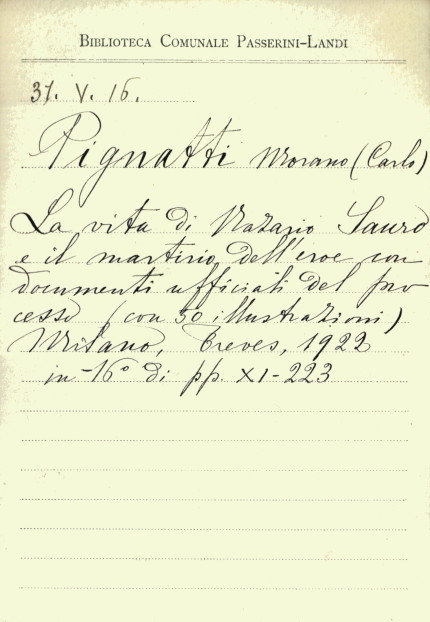 BIBLIOTECA COMUNALE PASSERINI-LANDI
31. V. 16.
Pignatti Morano (Carlo)
La vita di Nazario Sauro
e il martirio dell'eroe con
documenti ufficiali del pro
cesso (con 50 illustrazioni)
Milano, Treves, 1922
in-16° di pp. XI-223